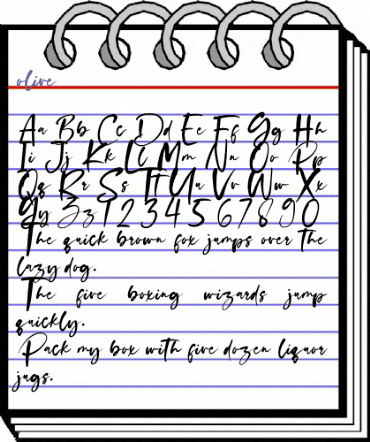 olive
Aa Bb Cc Dd Ee Ff Gg Hh
Ii Jj Kk Ll Mm Nn Oo Pp
Qq Rr Ss Tt Uu Vv Ww Xx
Yy Zz 1 2 3 4 5 6 7 8 9 0
The quick brown fox jumps over the
lazy dog.
The five boxing wizards jump
quickly.
Pack my box with five dozen liquor
jugs.